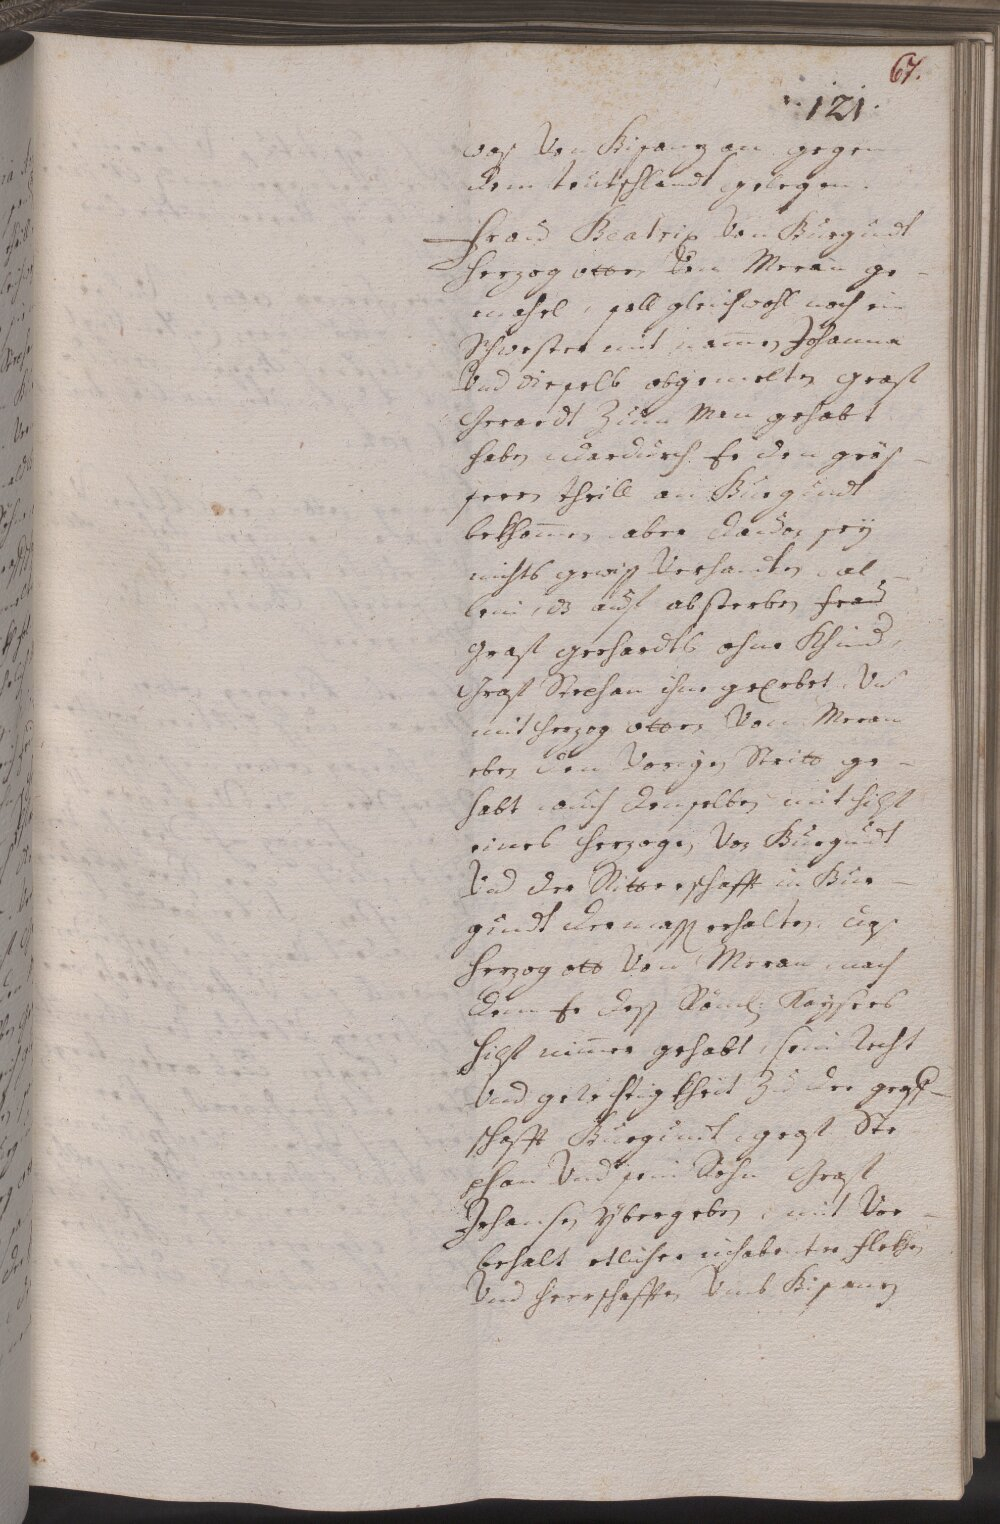 67.
121.
was Von Bisanz an gegen
dem teutschlandt gelegen.
Fraw Beatrix Von Burgundt
Herzog otten Von Meran ge-
mahel, soll gleichwohl noch ein
Schwester mit namen Johanna
Und dieselb obgemelten Graff
Gerardt Zum Man gehabt
haben wardurch Er den grös-
seren theill an Burgundt
bekhomen, aber dauon sey
nichts gewiß Verhanden, al-
lein, dz auf absterben
Graff Gerhardts ohne Khind,
Graff Stephan ihne geerbet, Und
mit Herzog otten Von Meran
eben den Vorigen Streitt ge-
habt, auch denselben mit hilff
eines Herzogen Von Burgundt
Und der Ritterschafft in Bur-
gundt dermass erhalten, das
Herzog otto Von Meran, nach
dem Er dess Röml: Kaysers
hilff nimer gehabt, sein recht
Und gerechtigkheit Zu der graff-
schafft Burgundt, graff Ste-
phan Und sein Sohn Graff
Johansen ybergeben, mit Vor-
behalt etlicher inhabenter flekhen
Und Herrschafften Umb Bisanz